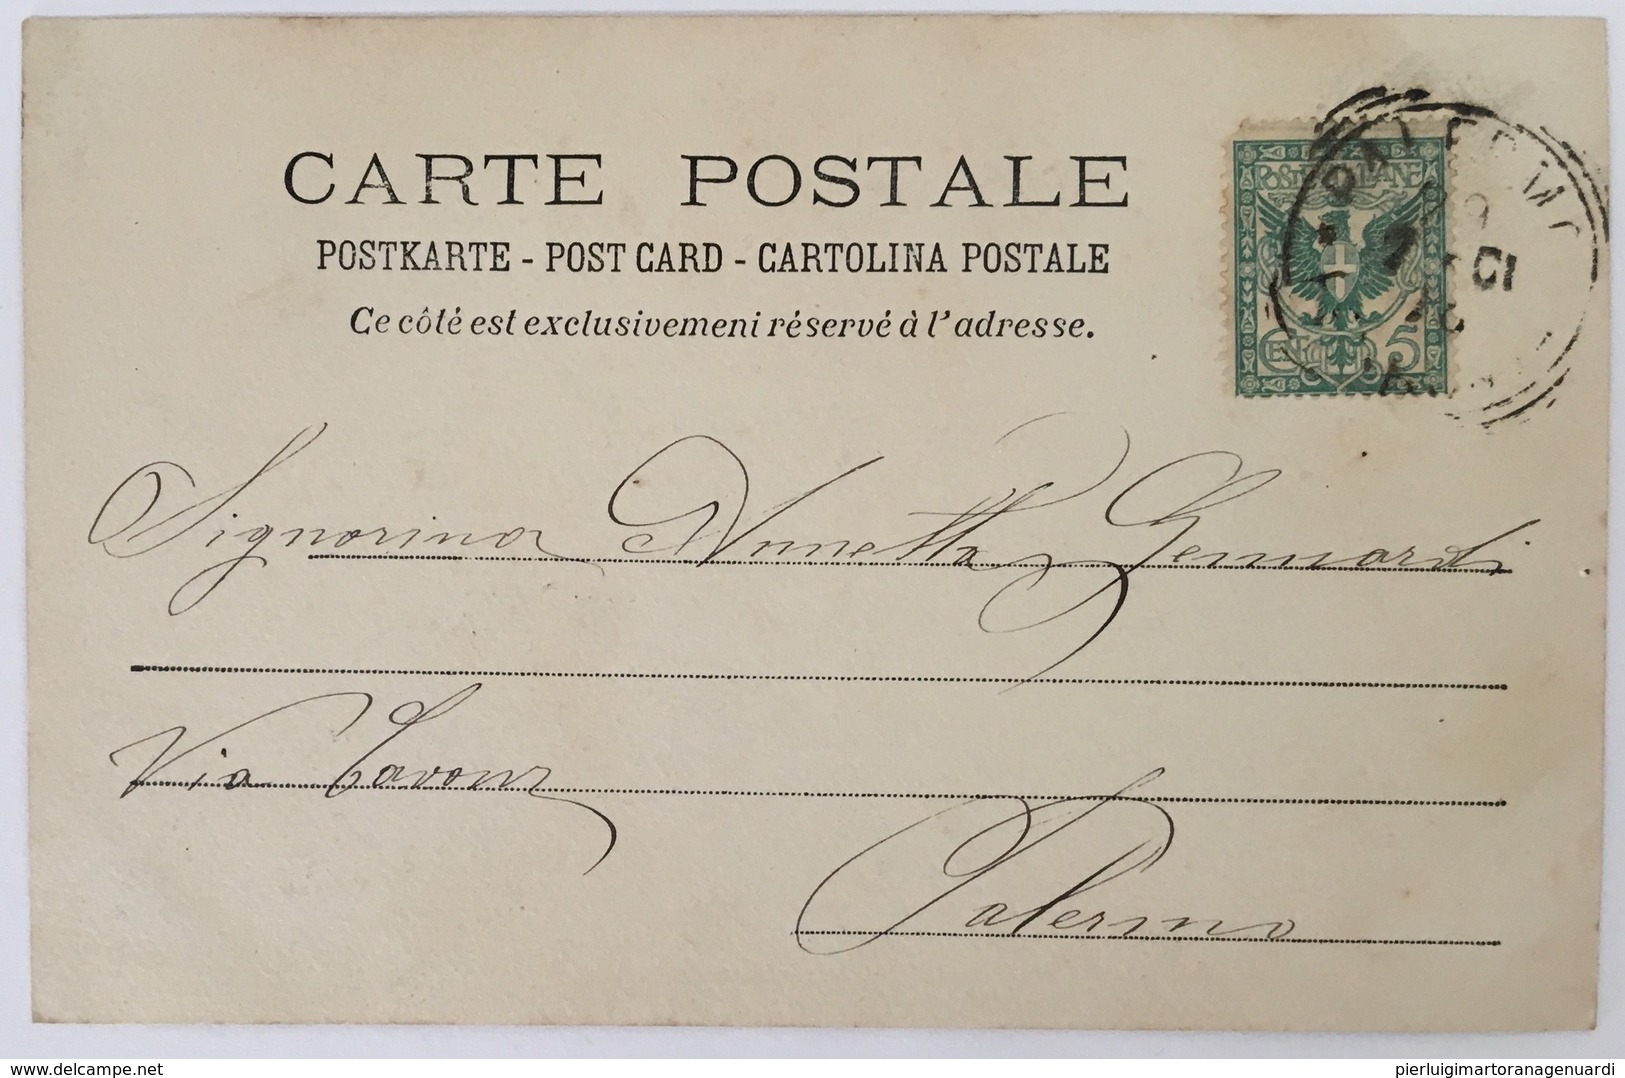 CARTE POSTALE
POSTKARTE - POST CARD - CARTOLINA POSTALE
Ce côté est exclusivement réservé à l'adresse.
POSTE ITALIANE
CENT. 5
PALERMO
Signorina Annetta Gennardi
Via Cavour
Palermo
www.delcampe.net
pierluigimartoranagenuardi